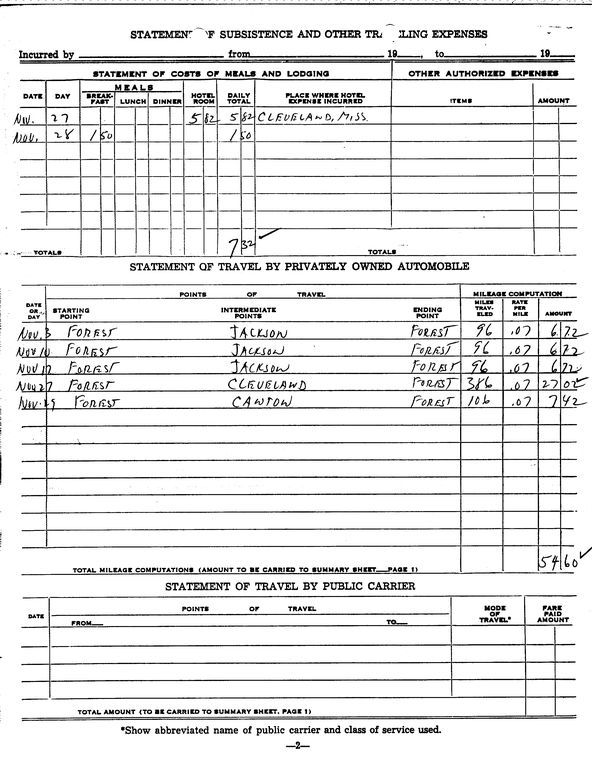 STATEMENT OF SUBSISTENCE AND OTHER TRAVELING EXPENSES
Incurred by from 19 , to 19
STATEMENT OF COSTS OF MEALS AND LODGING OTHER AUTHORIZED EXPENSES
DATE DAY MEALS BREAK-FAST LUNCH DINNER HOTEL ROOM DAILY TOTAL PLACE WHERE HOTEL EXPENSE INCURRED ITEMS AMOUNT
Nov. 27 5 82 5 82 CLEVELAND, MISS.
Nov. 28 1 50 1 50
7 32
TOTALS TOTALS
STATEMENT OF TRAVEL BY PRIVATELY OWNED AUTOMOBILE
POINTS OF TRAVEL MILEAGE COMPUTATION
DATE OR DAY STARTING POINT INTERMEDIATE POINTS ENDING POINT MILES TRAV-ELED RATE PER MILE AMOUNT
Nov. 3 FOREST JACKSON FOREST 96 .07 6 72
Nov FOREST JACKSON FOREST 96 .07 6 72
Nov 17 FOREST JACKSON FOREST 96 .07 6 72
Nov 27 FOREST CLEVELAND FOREST 386 .07 27 02
Nov. FOREST CANTON FOREST 106 .07 7 42
54 60
TOTAL MILEAGE COMPUTATIONS (AMOUNT TO BE CARRIED TO SUMMARY SHEET PAGE 1)
STATEMENT OF TRAVEL BY PUBLIC CARRIER
DATE POINTS OF TRAVEL MODE OF TRAVEL* FARE PAID AMOUNT
FROM TO
TOTAL AMOUNT (TO BE CARRIED TO SUMMARY SHEET. PAGE 1)
*Show abbreviated name of public carrier and class of service used.
—2—